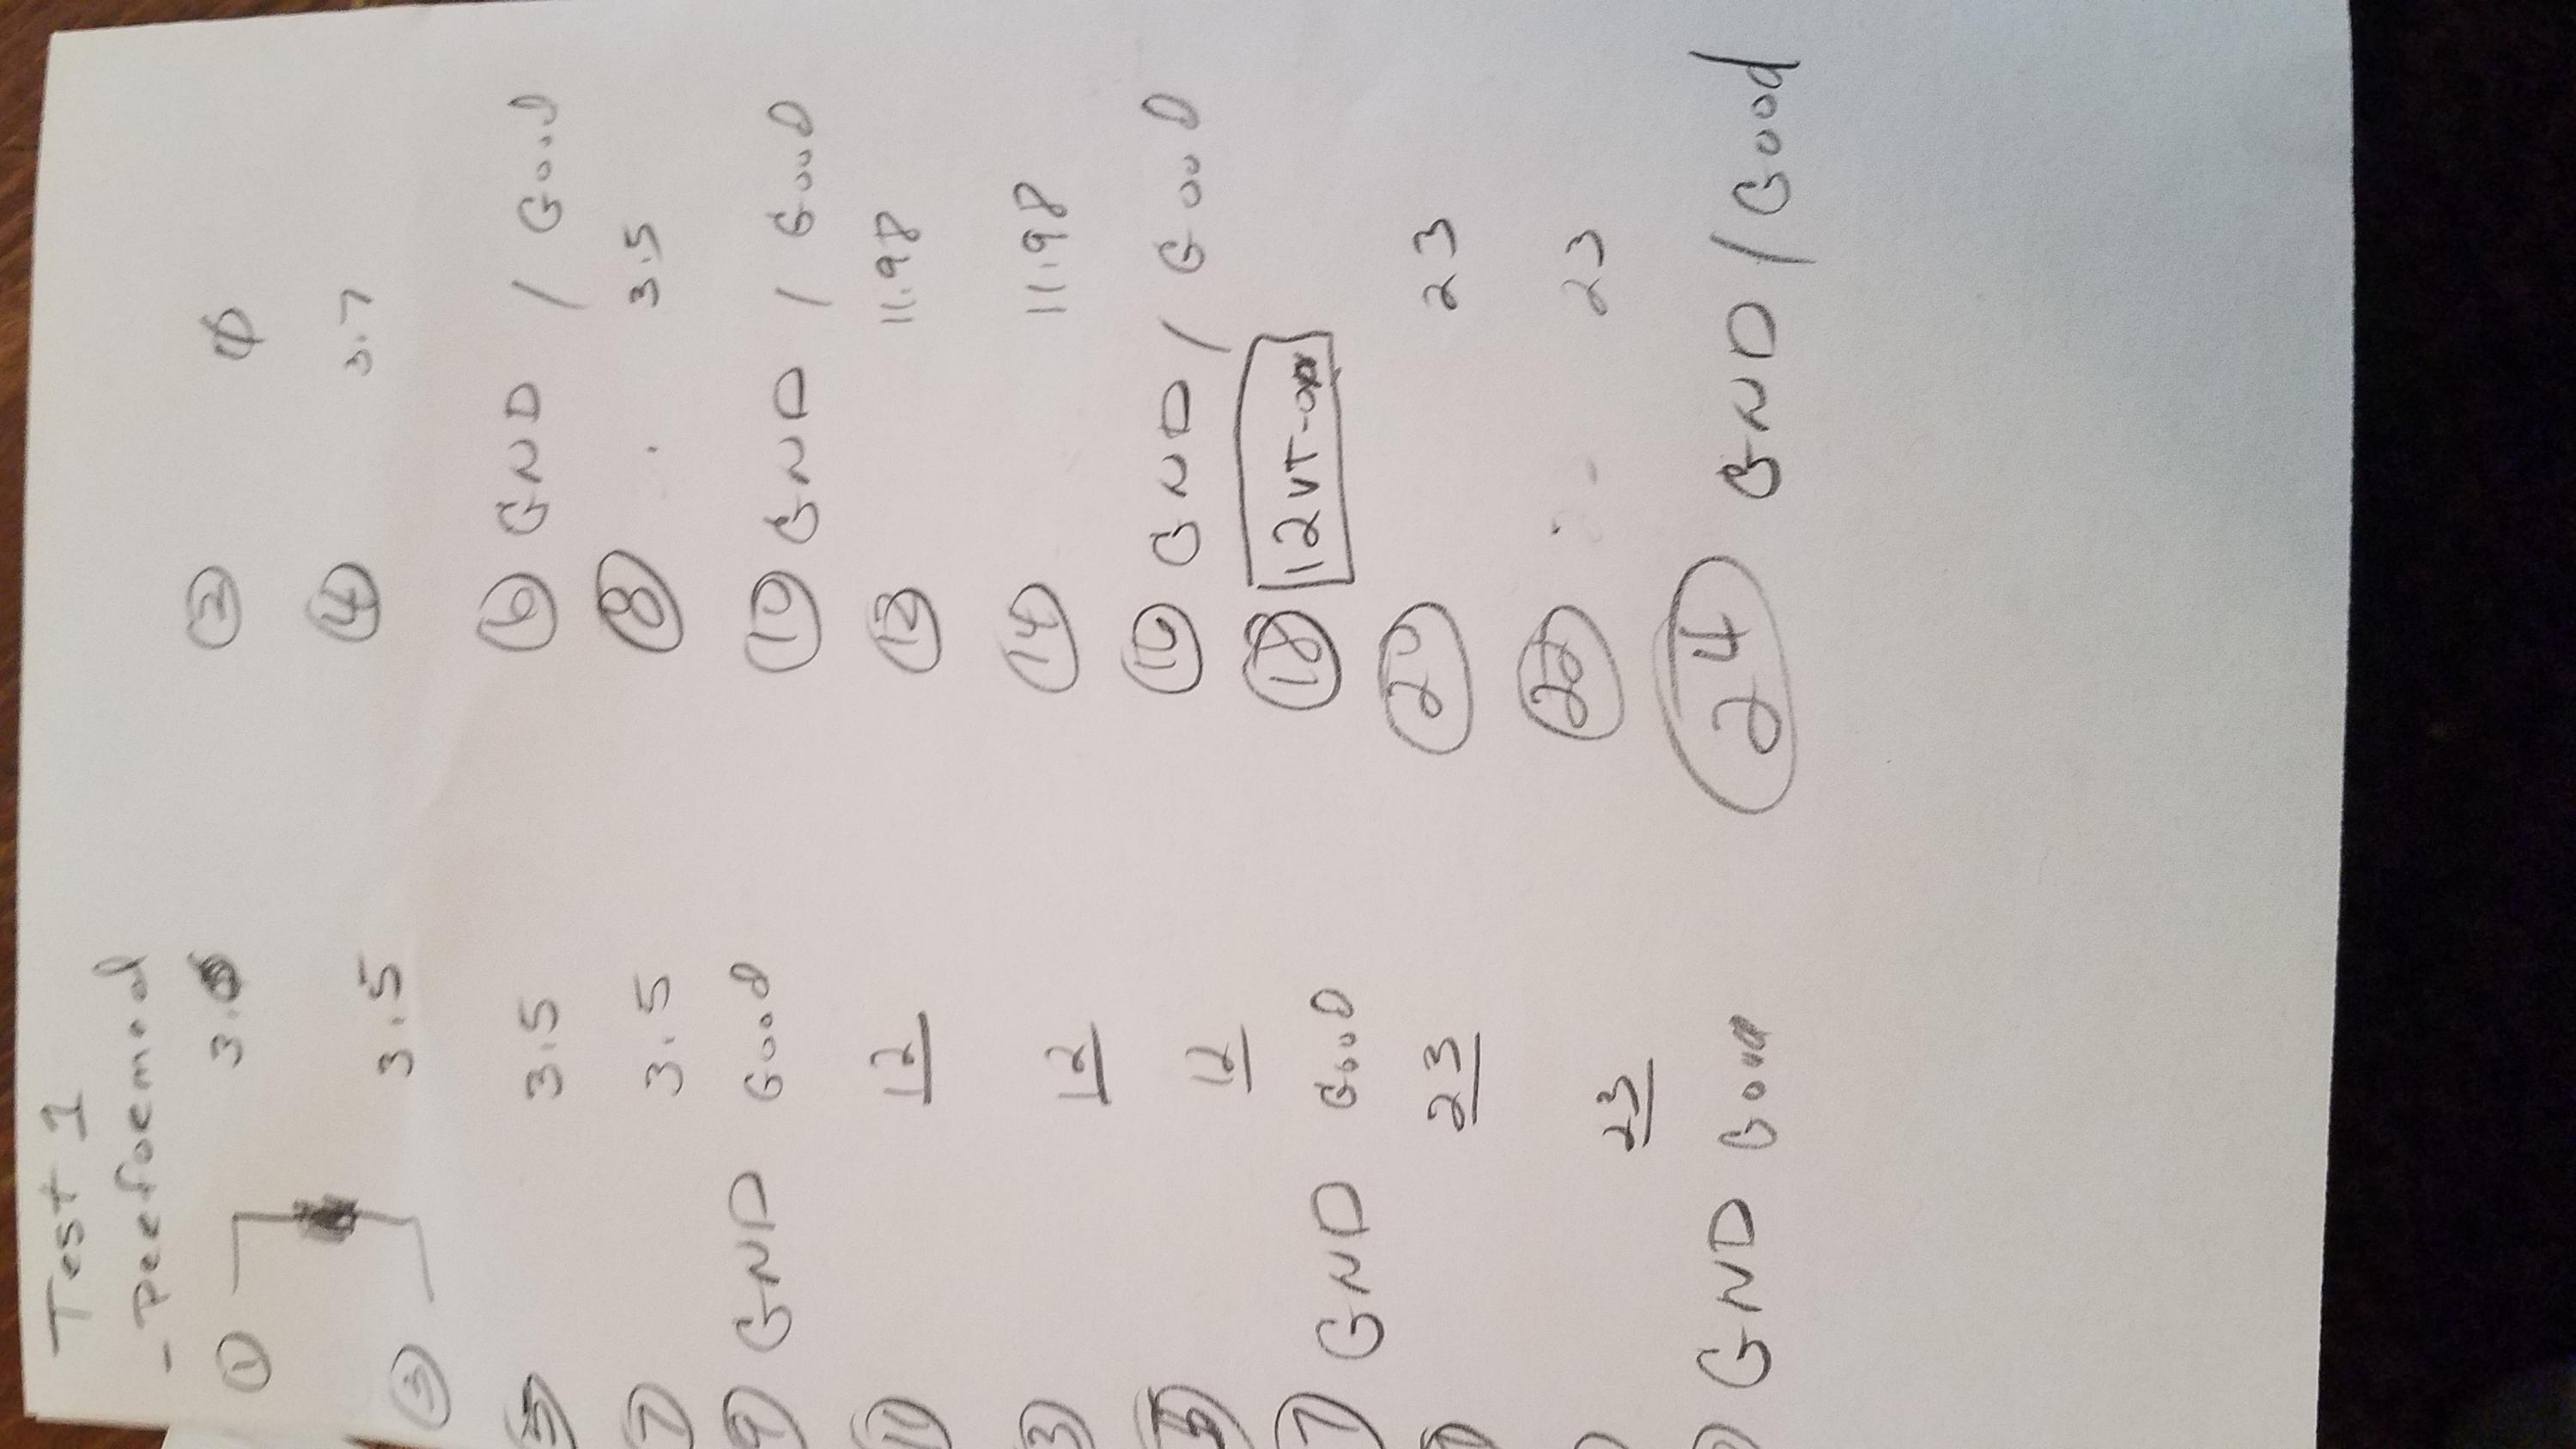 Test 1
- Peeformed
① 3. ② ϕ
③ 3.5 ④ 3.7
⑤ 3.5 ⑥ GND / Good
⑦ 3.5 ⑧ 3.5
⑨ GND Good ⑩ GND / Good
⑪ 12 ⑫ 11.98
12 ⑭ 11.98
12 ⑯ GND / Good
GND Good ⑱ 12VT-
23 ⑳ 23
23 23
GND Good ㉔ GND / Good